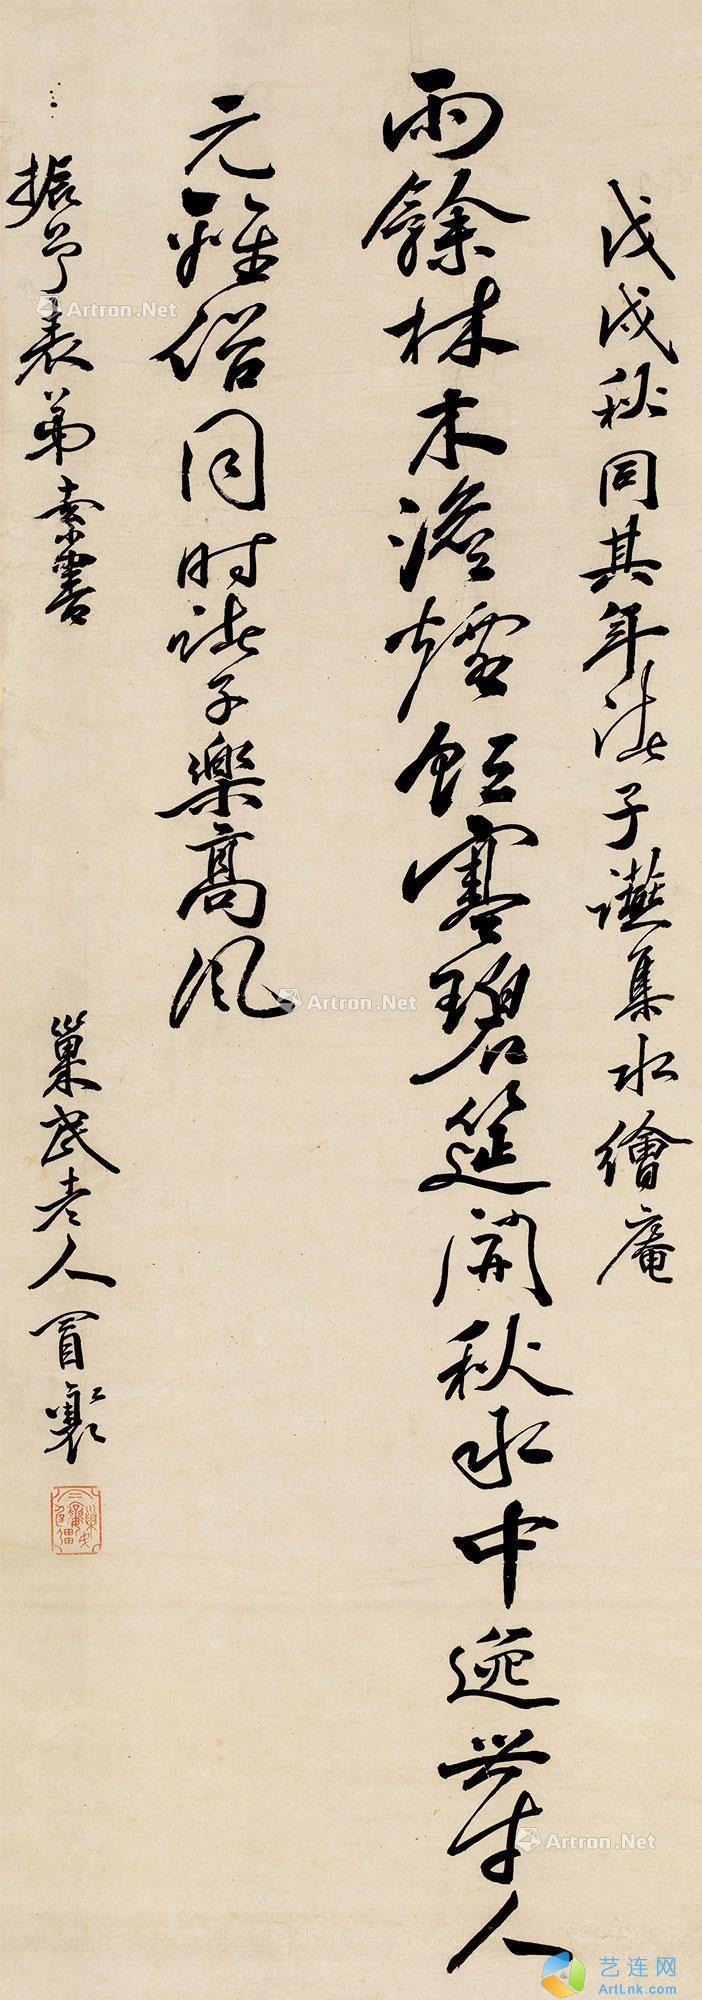 戊戌秋同其年諸子讌集水繪庵
雨餘林木澹煙虹寒碧筵開秋水中逸興才人
元難俗同時諸子樂高風
振予表弟索書
巢民老人冒襄
Artron.Net
Artron.Net
Artron.Net
艺连网
ArtLnk.com